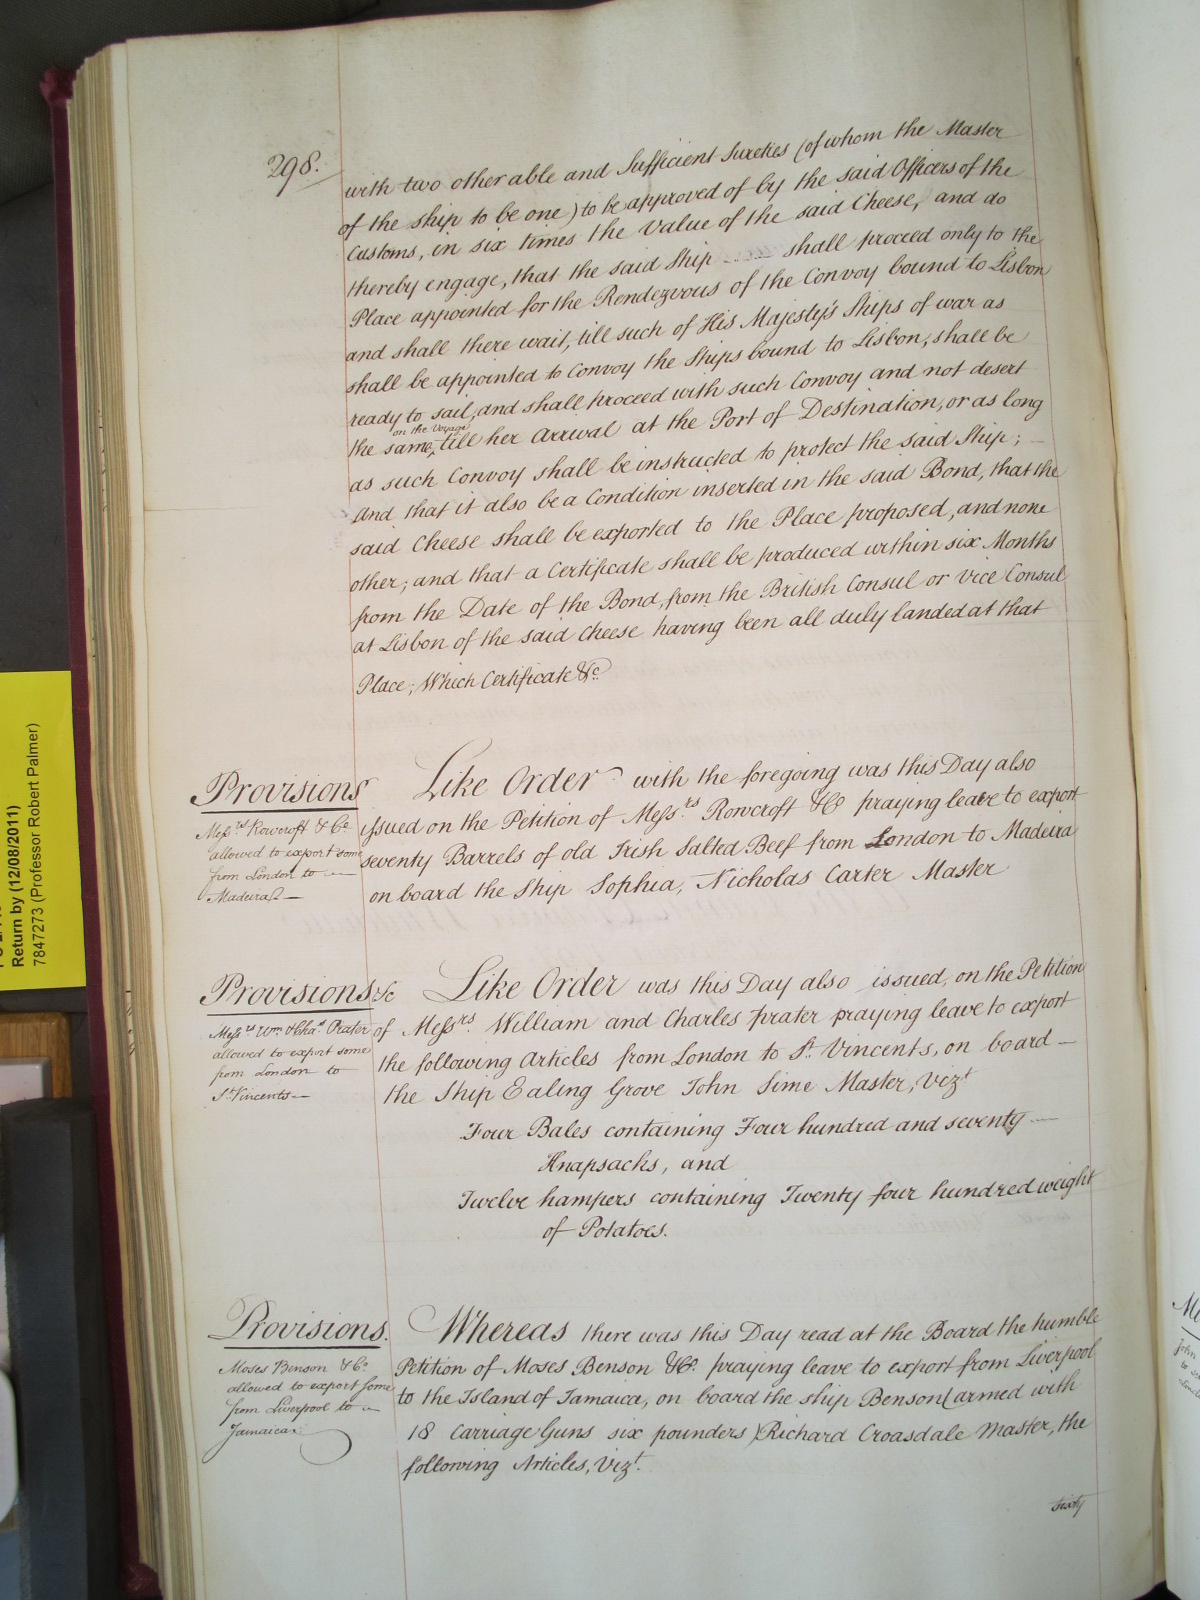 298.
with two other able and Sufficient Sureties (of whom the Master
of the ship to be one) to be approved of by the said Officers of the
Customs, in six times the Value of the said Cheese, and do
thereby engage, that the said Ship shall proceed only to the
Place appointed for the Rendezvous of the Convoy bound to Lisbon
and shall there wait, till such of His Majesty's Ships of war as
shall be appointed to Convoy the Ships bound to Lisbon, shall be
ready to sail, and shall proceed with such Convoy and not desert
on the Voyage
the same, till her Arrival at the Port of Destination, or as long
as such Convoy shall be instructed to protect the said Ship; —
And that it also be a Condition inserted in the said Bond, that the
said Cheese shall be exported to the Place proposed, and none
other; and that a Certificate shall be produced within six Months
from the Date of the Bond, from the British Consul or Vice Consul
at Lisbon of the said Cheese having been all duly landed at that
Place; Which Certificate &c.
Provisions
Messrs Rowcroft & Co.
allowed to export some
from London to —
Madeira —
Like Order with the foregoing was this Day also
issued on the Petition of Messrs. Rowcroft &Co praying leave to export
seventy Barrels of old Irish Salted Beef from London to Madeira
on board the Ship Sophia, Nicholas Carter Master
Provisions &c
Messrs Wm. & Chas. Prater
allowed to export some
from London to
St. Vincents —
Like Order was this Day also issued, on the Petition
of Messrs. William and Charles Prater praying leave to export
the following Articles from London to St. Vincents, on board —
the Ship Ealing Grove John Sime Master, Vizt
Four Bales containing Four hundred and seventy —
Knapsacks, and
Twelve hampers containing Twenty four hundred weight
of Potatoes.
Provisions.
Moses Benson & Co.
allowed to export some
from Liverpool to —
Jamaica.
Whereas there was this Day read at the Board the humble
Petition of Moses Benson &Co. praying leave to export from Liverpool
to the Island of Jamaica, on board the ship Benson (armed with
18 Carriage Guns six pounders) Richard Croasdale Master, the
following Articles, Vizt.
sixty
Return by (12/08/2011)
7847273 (Professor Robert Palmer)